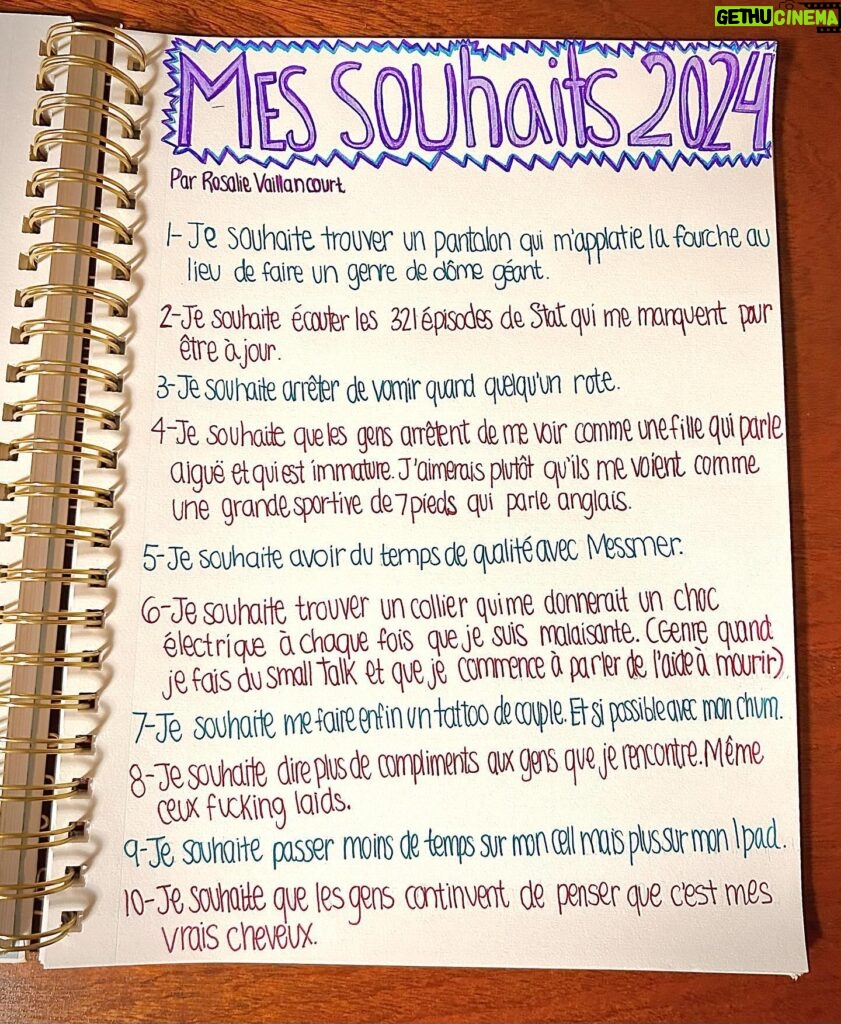 GETHUCINEMA
MES SOUhaits 2024
Par Rosalie Vaillancourt
1- Je souhaite trouver un pantalon qui m'applatie la fourche au
lieu de faire un genre de dôme géant.
2-Je souhaite écouter les 321 épisodes de Stat qui me manquent pour
être à jour.
3-Je souhaite arrêter de vomir quand quelqu'un rote.
4-Je souhaite que les gens arrêtent de me voir comme une fille qui parle
aiguë et qui est immature. J'aimerais plutôt qu'ils me voient comme
une grande sportive de 7 pieds qui parle anglais.
5-Je souhaite avoir du temps de qualité avec Messmer.
6-Je souhaite trouver un collier qui me donnerait un choc
électrique à chaque fois que je suis malaisante. (Genre quand
je fais du small talk et que je commence à parler de l'aide à mourir)
7-Je souhaite me faire enfin un tattoo de couple. Et si possible avec mon chum.
8-Je souhaite dire plus de compliments aux gens que je rencontre. Même
ceux fucking laids.
9-Je souhaite passer moins de temps sur mon cell mais plus sur mon Ipad.
10-Je souhaite que les gens continuent de penser que c'est mes
vrais cheveux.